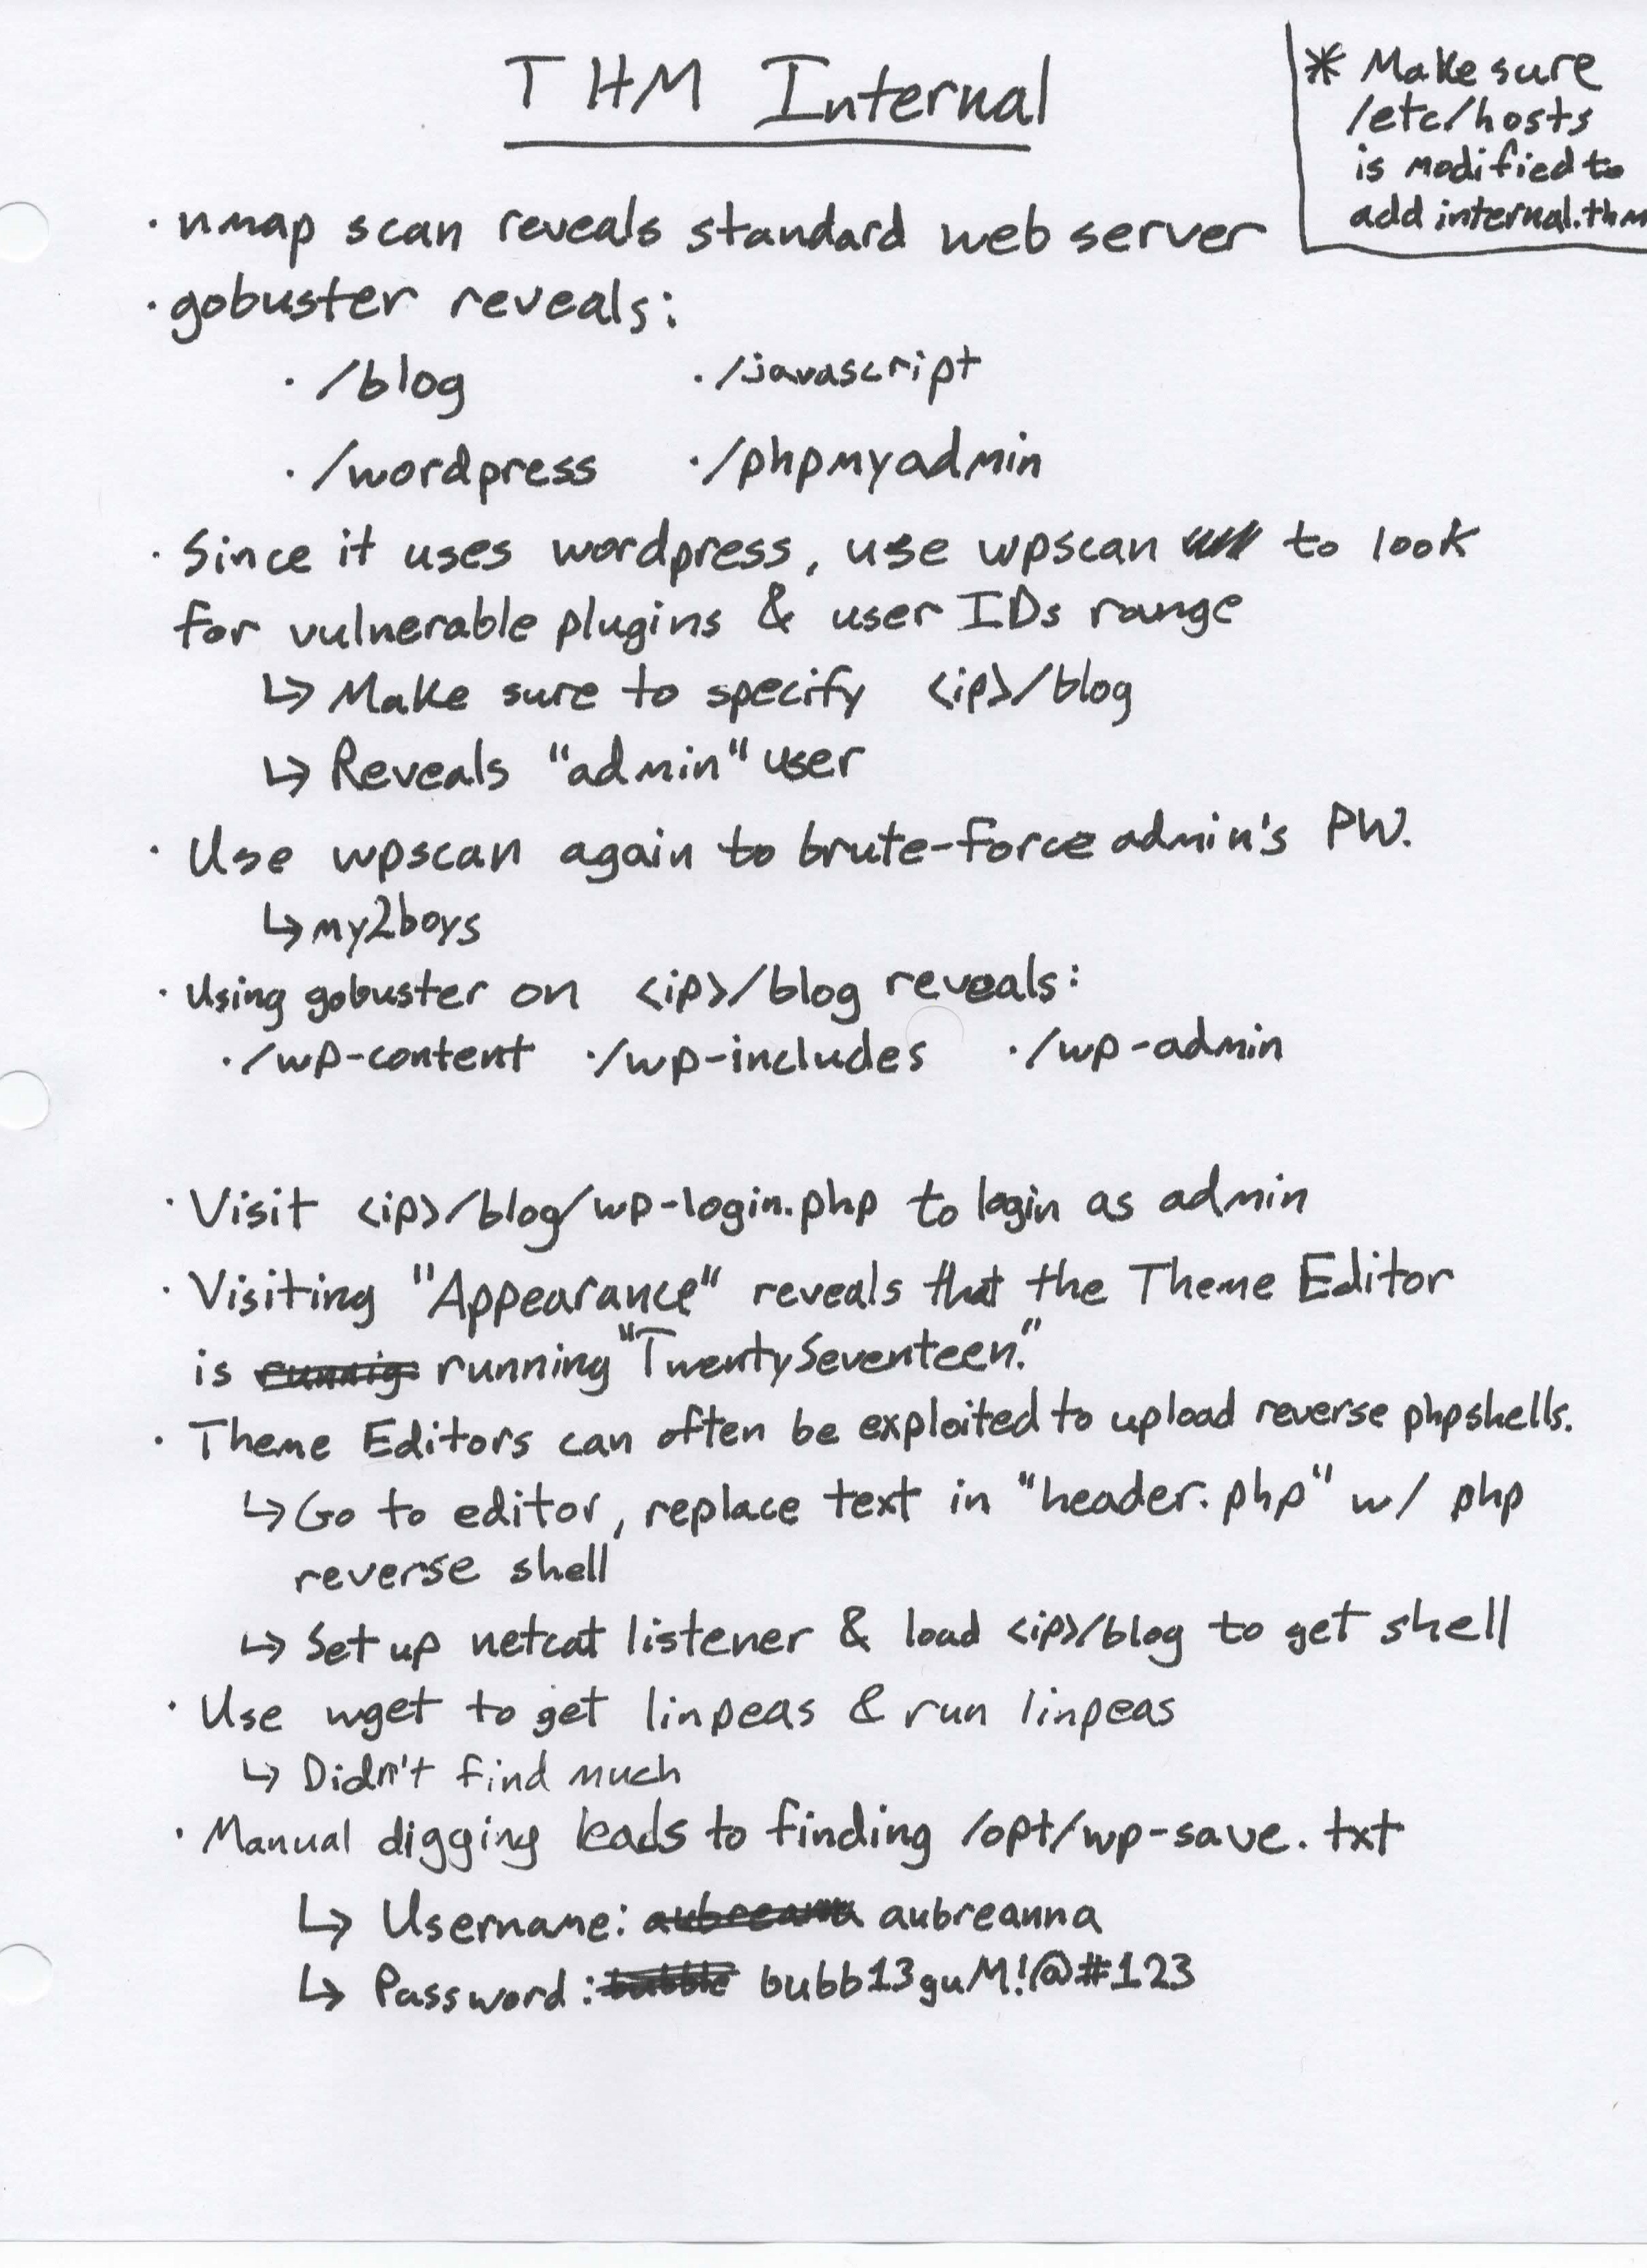 THM Internal
* Make sure
/etc/hosts
is modified to
add internal.thm
· nmap scan reveals standard web server
· gobuster reveals:
· /blog · /javascript
· /wordpress · /phpmyadmin
· Since it uses wordpress, use wpscan to look
for vulnerable plugins & user IDs range
↳ Make sure to specify <ip>/blog
↳ Reveals "admin" user
· Use wpscan again to brute-force admin's PW.
↳ my2boys
· Using gobuster on <ip>/blog reveals:
· /wp-content · /wp-includes · /wp-admin
· Visit <ip>/blog/wp-login.php to login as admin
· Visiting "Appearance" reveals that the Theme Editor
is running "TwentySeventeen."
· Theme Editors can often be exploited to upload reverse php shells.
↳ Go to editor, replace text in "header.php" w/ php
reverse shell
↳ Set up netcat listener & load <ip>/blog to get shell
· Use wget to get linpeas & run linpeas
↳ Didn't find much
· Manual digging leads to finding /opt/wp-save.txt
↳ Username: aubreanna
↳ Password: bubb13guM!@#123